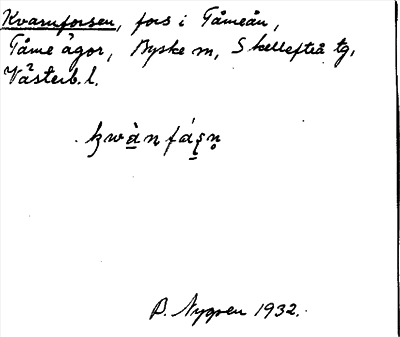 Kvarnforsen, fors i Tåmeån,
Tåme ägor, Byske m, Skellefteå tg,
Västerb. l.
kwànfásn
B. Nygren 1932.